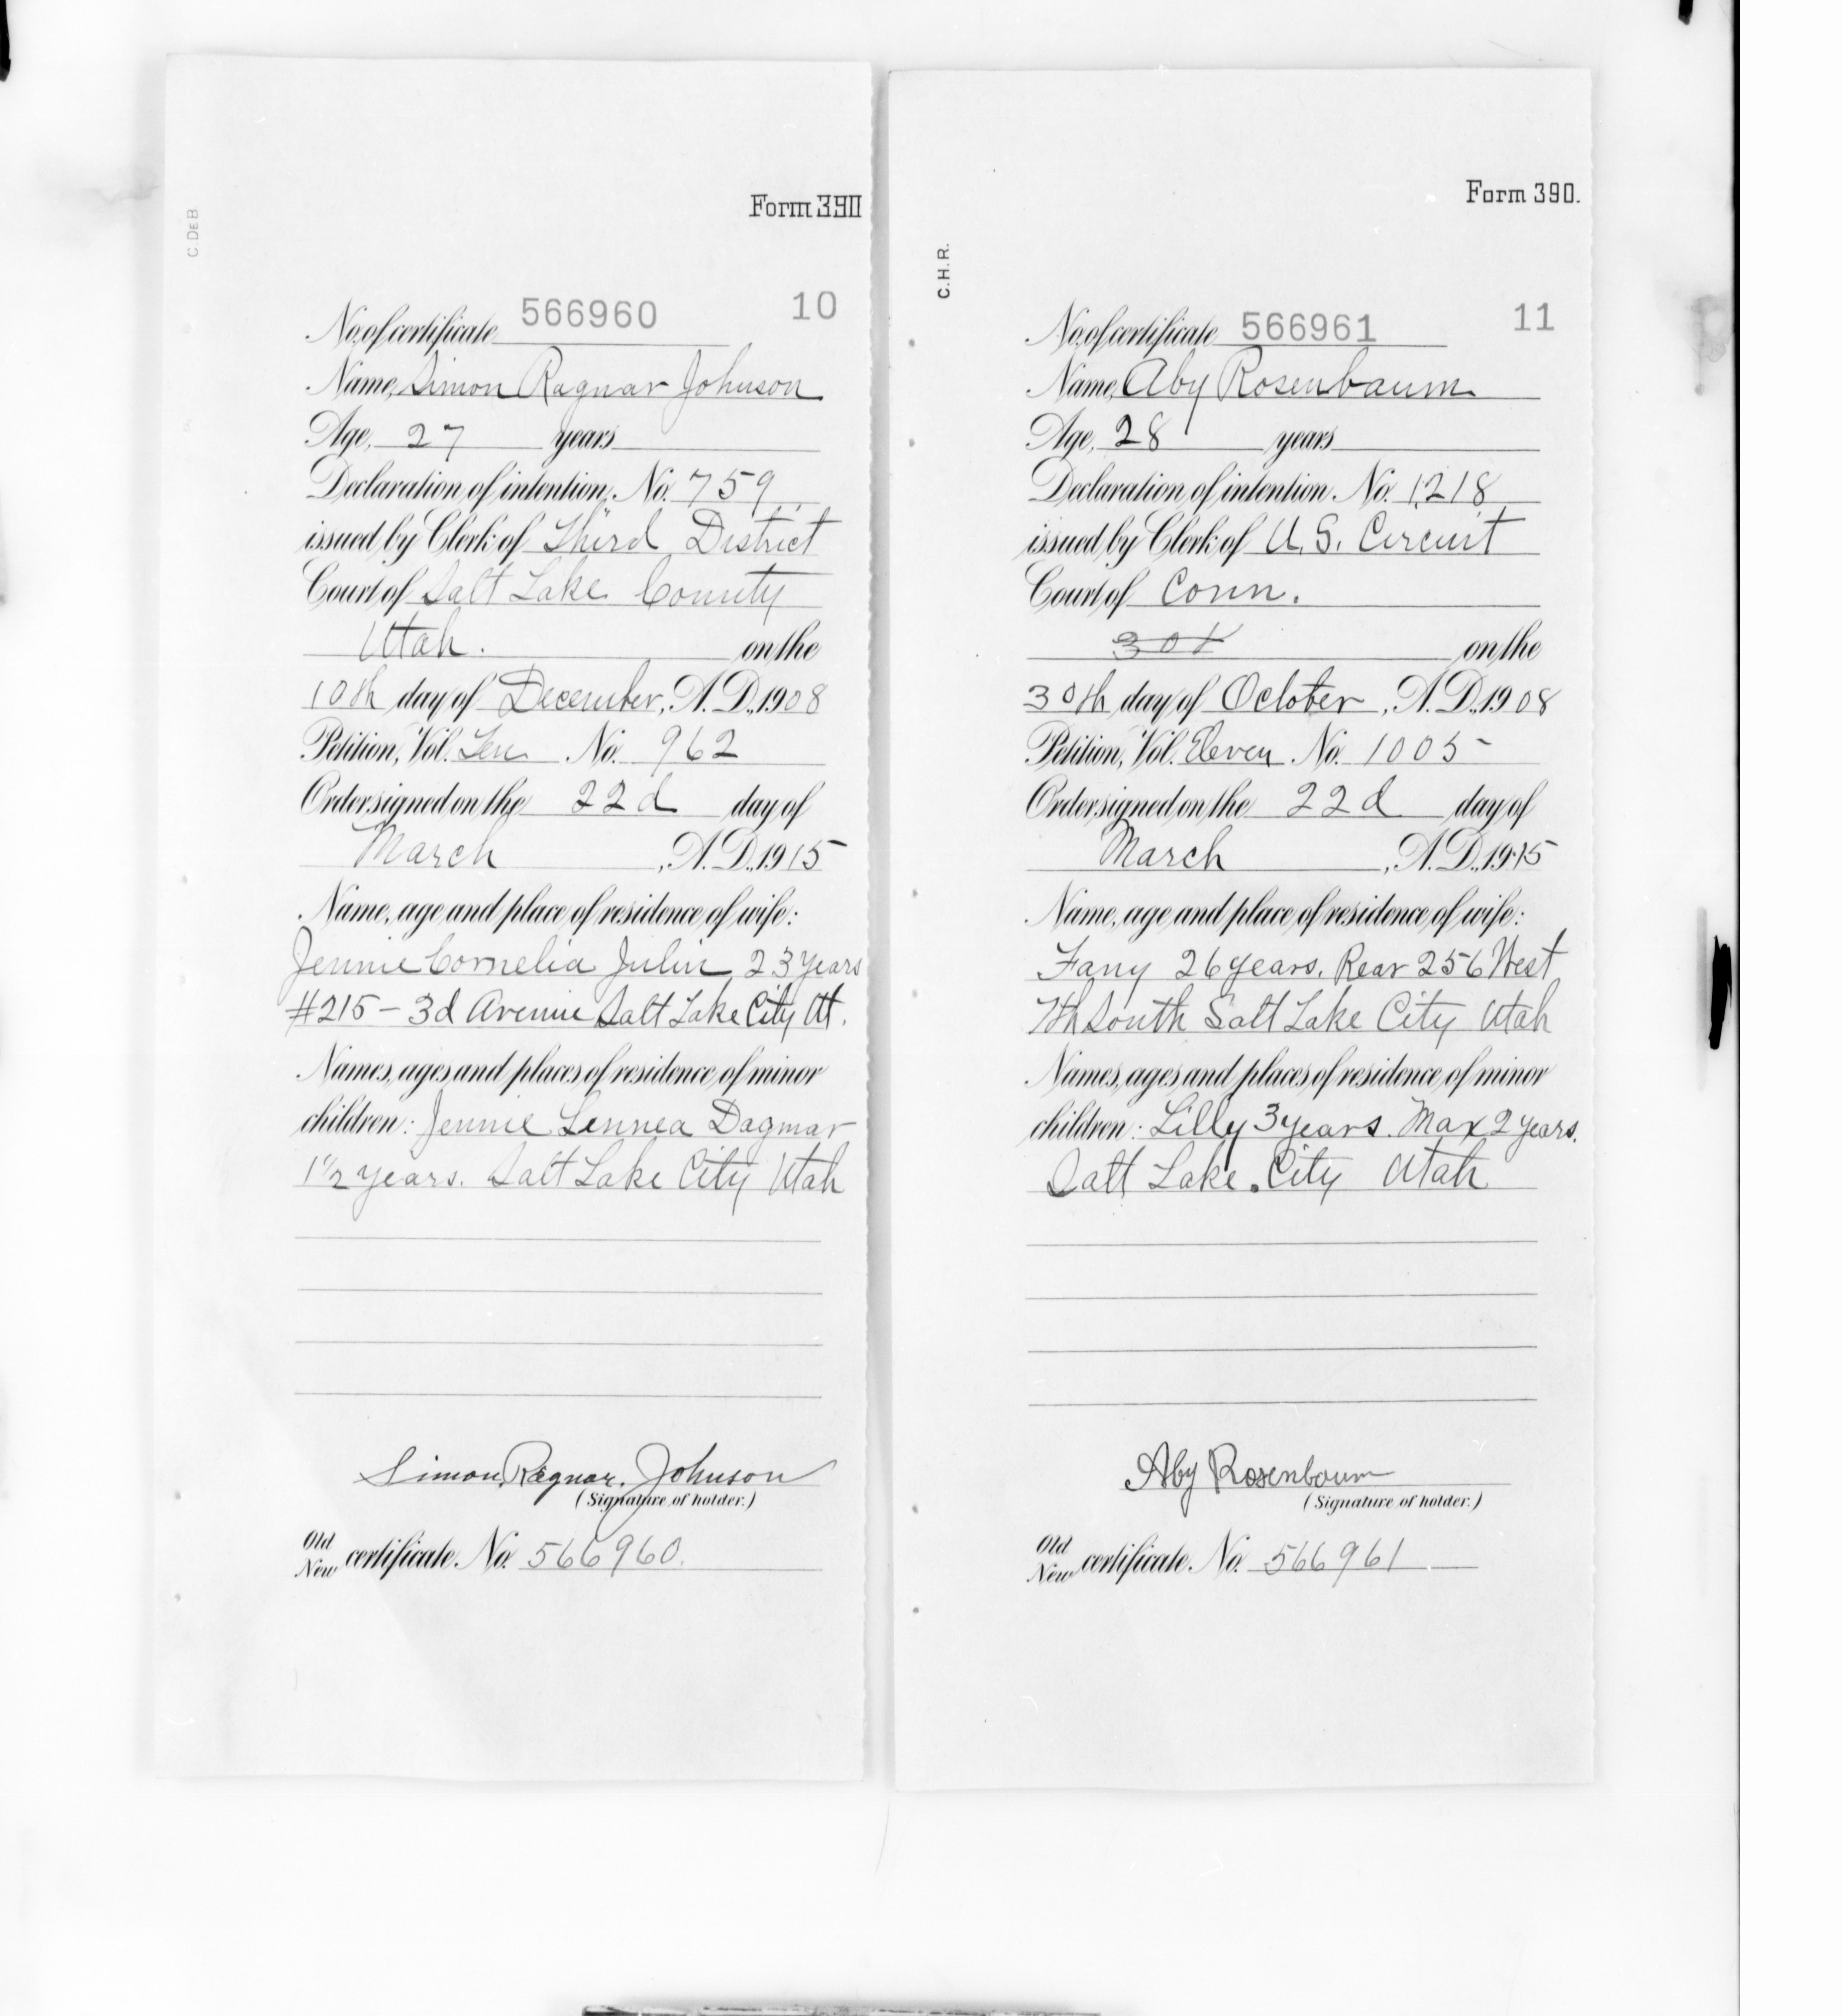 Form 390
C.DEB
566960 10
No. of certificate
Name, Simon Ragnar Johnson
Age, 27 years
Declaration of intention, No. 759
issued by Clerk of Third District
Court of Salt Lake County
Utah. on the
10th day of December, A.D., 1908
Petition, Vol. Ten No. 962
Order signed on the 22d day of
March, A.D., 1915
Name, age and place of residence of wife:
Jennie Cornelia Julin 23 years
#215 - 3d Avenue Salt Lake City Ut.
Names, ages and places of residence of minor
children: Jennie Linnea Dagmar
1 1/2 years. Salt Lake City Utah
Simon Ragnar Johnson
(Signature of holder.)
Old
New certificate No. 566960.
Form 390.
C.H.R.
No. of certificate 566961 11
Name, Aby Rosenbaum
Age, 28 years
Declaration of intention. No. 1218
issued by Clerk of U.S. Circuit
Court of Conn.
on the
30th day of October, A.D., 1908
Petition, Vol. Eleven No. 1005-
Order signed on the 22d day of
March, A.D., 1915
Name, age and place of residence of wife:
Fany 26 years. Rear 256 West
7th South Salt Lake City Utah
Names, ages and places of residence of minor
children: Lilly 3 years. Max 2 years.
Salt Lake City Utah
Aby Rosenbaum
(Signature of holder.)
Old
New certificate No. 566961